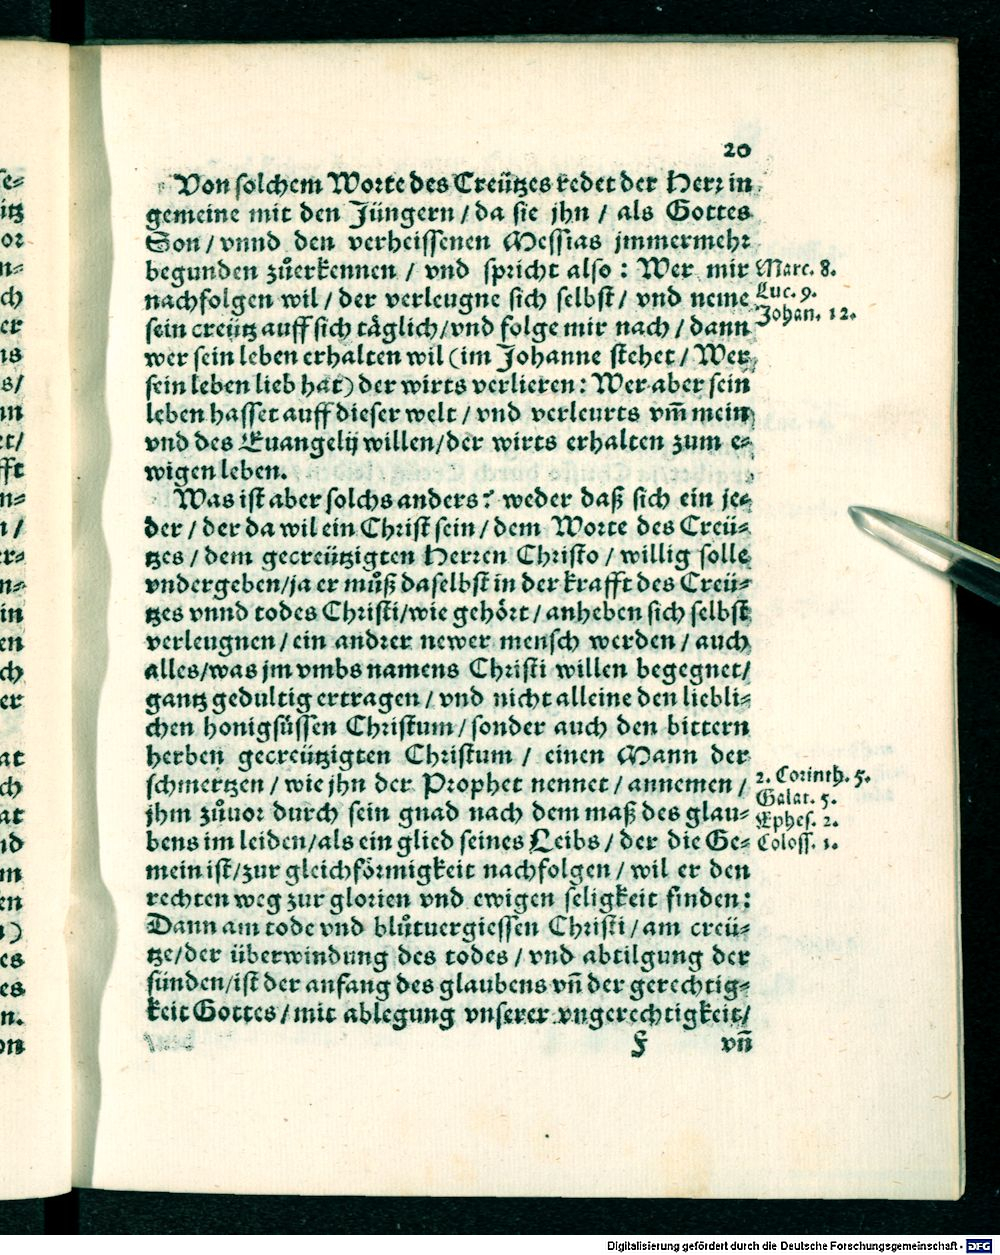 20
Von solchem Worte des Creützes redet der Herr in
gemeine mit den Jüngern / da sie jhn / als Gottes
Son / vnnd den verheissenen Messias jmmermehr
begunden zůerkennen / vnd spricht also : Wer mir
nachfolgen wil / der verleugne sich selbst / vnd neme
sein creütz auff sich täglich/vnd folge mir nach / dann
wer sein leben erhalten wil (im Johanne stehet / Wer
sein leben lieb hat) der wirts verlieren : Wer aber sein
leben hasset auff dieser welt / vnd verleurts vm̃ mein
vnd des Euangelij willen/der wirts erhalten zum e-
wigen leben.
Marc. 8.
Luc. 9.
Johan. 12.
Was ist aber solchs anders? weder daß sich ein je-
der / der da wil ein Christ sein / dem Worte des Creü-
tzes / dem gecreützigten Herren Christo / willig solle
vndergeben/ja er můß daselbst in der krafft des Creü-
tzes vnnd todes Christi/wie gehört / anheben sich selbst
verleugnen / ein andrer newer mensch werden / auch
alles/was jm vmbs namens Christi willen begegnet/
gantz gedultig ertragen / vnd nicht alleine den liebli-
chen honigsüssen Christum / sonder auch den bittern
herben gecreützigten Christum / einen Mann der
schmertzen / wie jhn der Prophet nennet / annemen /
jhm zůuor durch sein gnad nach dem maß des glau-
bens im leiden/als ein glied seines Leibs / der die Ge-
mein ist/zur gleichförmigkeit nachfolgen / wil er den
rechten weg zur glorien vnd ewigen seligkeit finden :
Dann am tode vnd blůtuergiessen Christi / am creü-
tze/der überwindung des todes / vnd abtilgung der
sünden/ist der anfang des glaubens vñ der gerechtig-
keit Gottes / mit ablegung vnserer vngerechtigkeit/
2. Corinth. 5.
Galat. 5.
Ephes. 2.
Coloss. 1.
F vñ
se-
itz
or
n-
ch
er
ns
s/
nn
et/
fft
n-
n /
er-
n-
in
en
ch
er
at
ch
at
nd
m
en
n)
es
es
n.
on
Digitalisierung gefördert durch die Deutsche Forschungsgemeinschaft - DFG